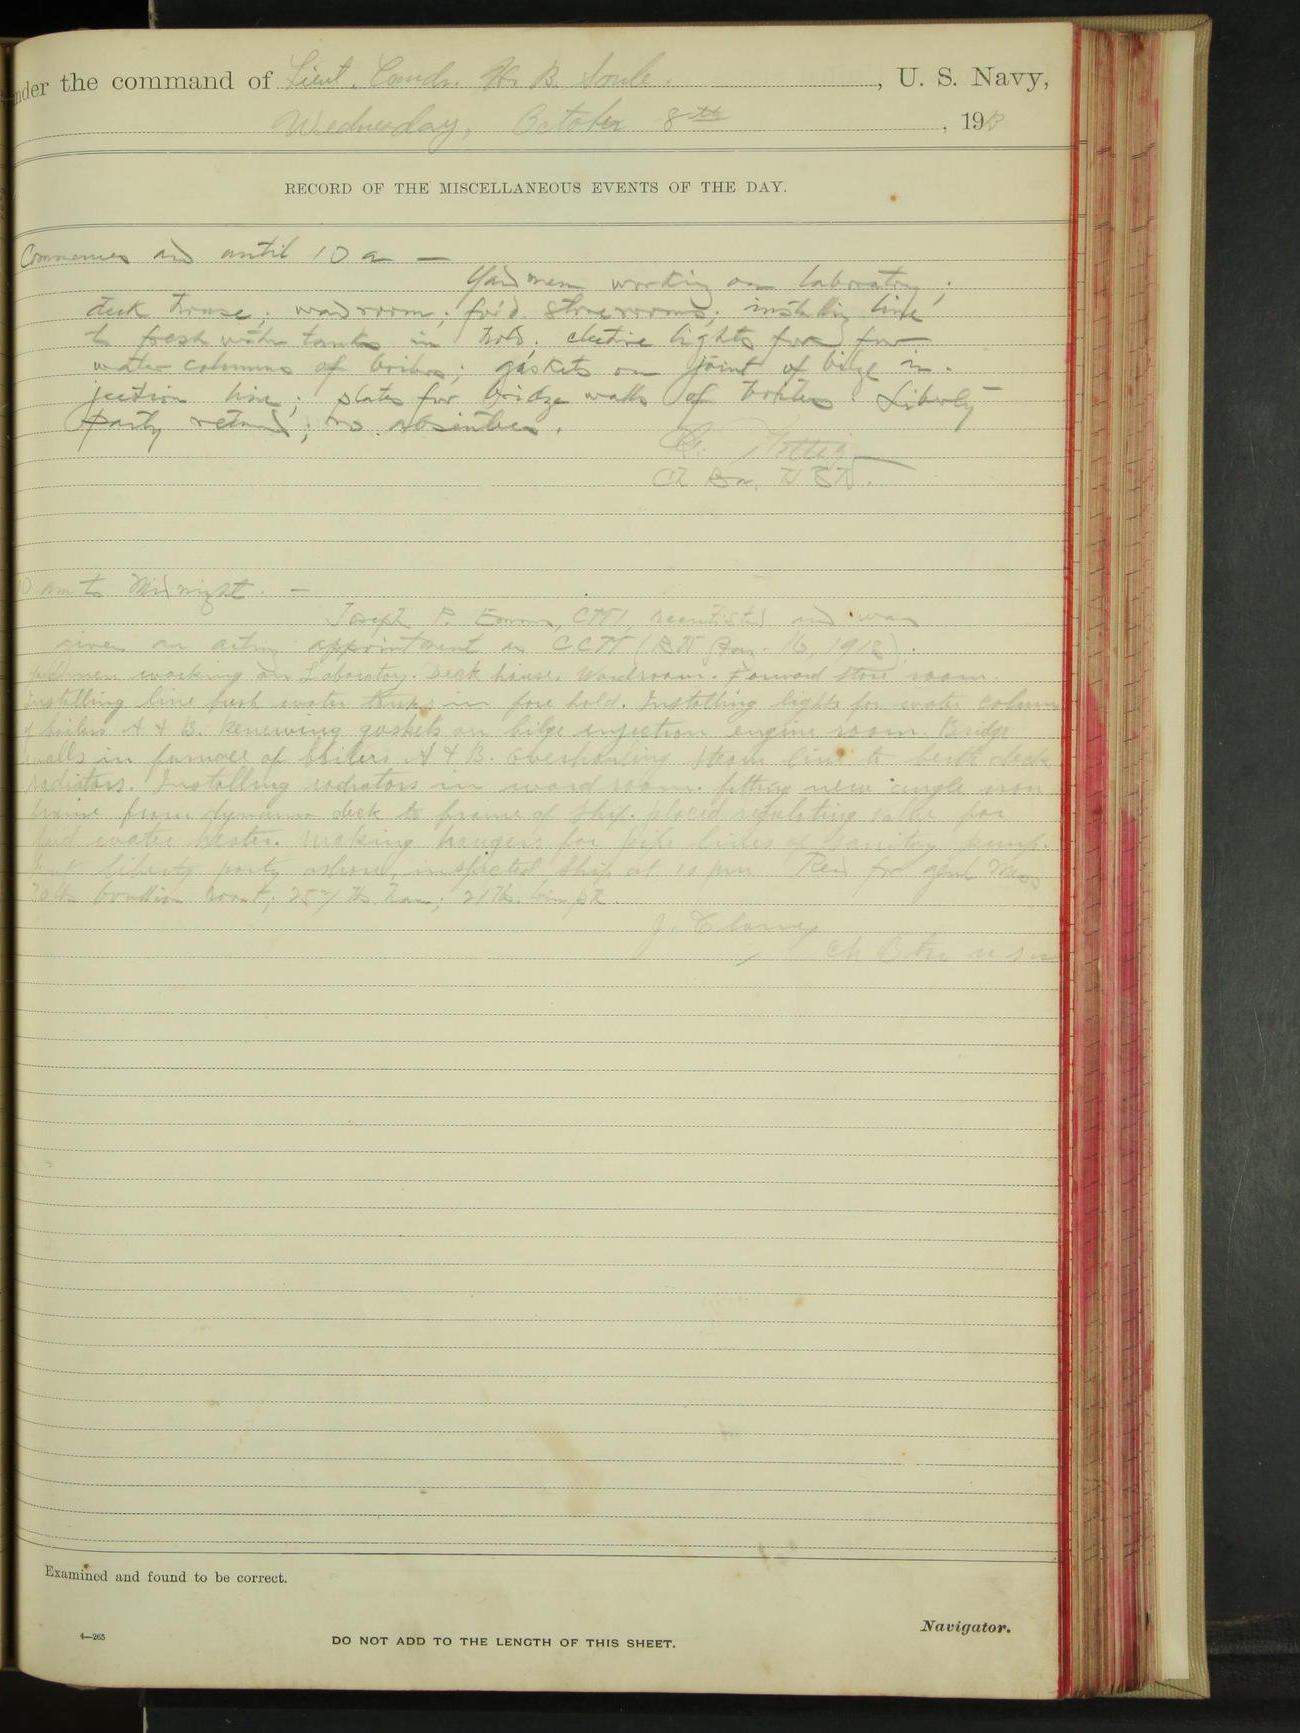 nder the command of Lieut. Comdr. H. B. Soule. , U. S. Navy,
Wednesday, October 8th , 191
RECORD OF THE MISCELLANEOUS EVENTS OF THE DAY.
Commences and until 10 a —
Yardmen working on laboratory;
deck house; wardroom; for'd. storerooms; installing line
to fresh water tanks in hold; electric lights for
water columns of boilers; gaskets on joint of bilge in-
jection line; plates for bridge walls of boilers. Liberty
party returned; no absentees.
Ch Bn, U S N.
10 am to Midnight. —
Joseph P. CTM, reenlisted and was
given an acting appointment as CCM (BN Jan. 16, 1912).
Yardmen working on Laboratory. Deck house. Wardroom. Forward store room.
Installing line fresh water tanks in fore hold. Installing lights for water column
of boilers A & B. Renewing gaskets on bilge injection engine room. Bridge
walls in furnace of boilers A & B. overhauling steam line to berth deck
radiators. Installing radiators in ward room. fitting new angle iron
frame from dynamo deck to frame of ship. placed regulating valve for
feed water heater. Making hangers for pipe lines of sanitary pump.
liberty party ashore, inspected ship at 10 pm Recd for genl Mess
roast; 257 lbs ham;
J.
Ch Btsn U S N
Examined and found to be correct.
Navigator.
4—265
DO NOT ADD TO THE LENGTH OF THIS SHEET.